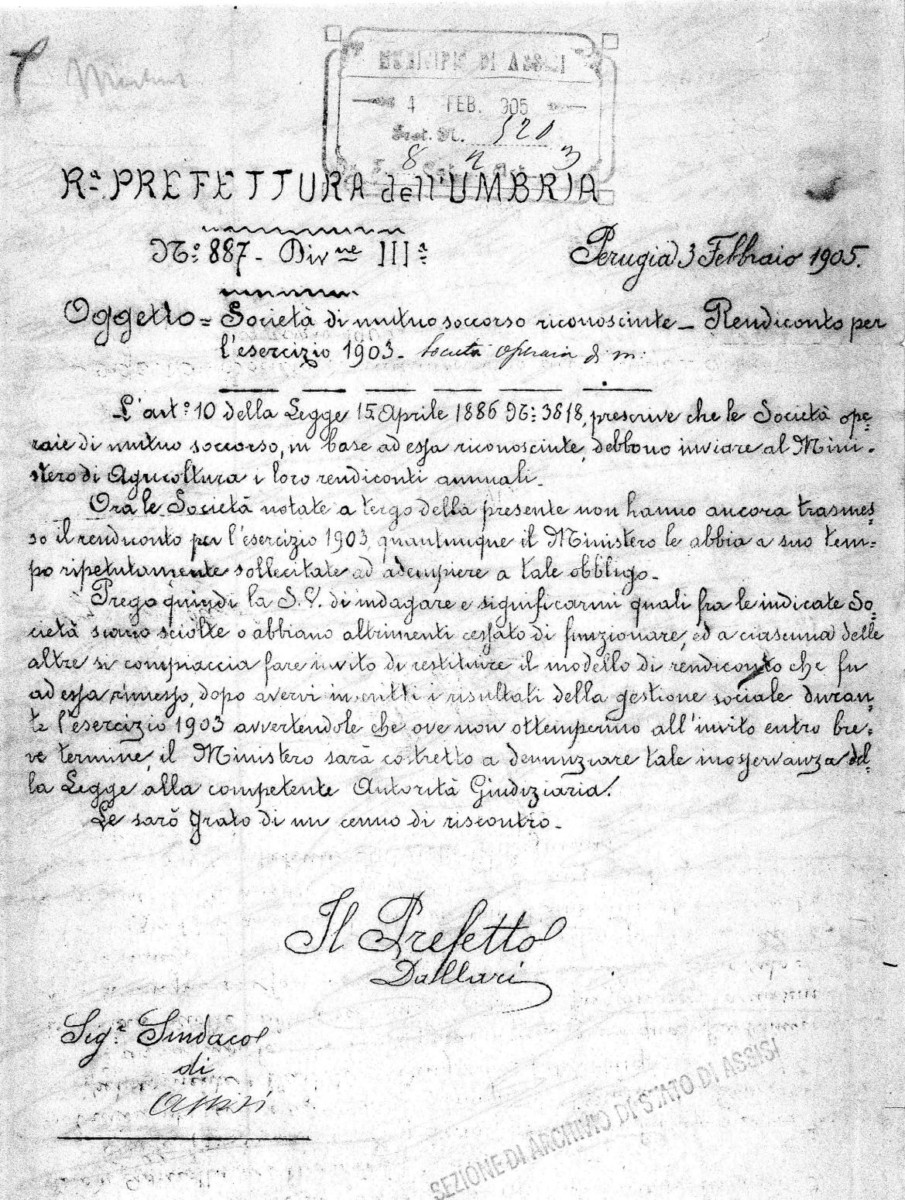 MUNICIPIO DI ASSISI
4 FEB. 905
Prot. N. 520
8 2 3
Rª PREFETTURA dell'UMBRIA
Nº 887 - Divne IIIª
Perugia 3 Febbraio 1905.
Oggetto = Società di mutuo soccorso riconosciute - Rendiconto per
l'esercizio 1903 - Società operaia di m:
L'artº 10 della Legge 15 Aprile 1886 Nº 3818, prescrive che le Società ope-
raie di mutuo soccorso, in base ad essa riconosciute, debbono inviare al Mini-
stero di Agricoltura i loro rendiconti annuali.
Ora le Società notate a tergo della presente non hanno ancora trasmes-
so il rendiconto per l'esercizio 1903, quantunque il Ministero le abbia a suo tem-
po ripetutamente sollecitate ad adempiere a tale obbligo.
Prego quindi la S.V. di indagare e significarmi quali fra le indicate So-
cietà siano sciolte o abbiano altrimenti cessato di funzionare, ed a ciascuna delle
altre si compiaccia fare invito di restituire il modello di rendiconto che fu
ad essa rimesso, dopo avervi inscritti i risultati della gestione sociale duran-
te l'esercizio 1903 avvertendole che ove non ottemperino all'invito entro bre-
ve termine, il Ministero sarà costretto a denunziare tale inosservanza del-
la Legge alla competente Autorità Giudiziaria.
Le sarò grato di un cenno di riscontro.
Il Prefetto
Dallari
Sigr Sindaco
di
Assisi
SEZIONE DI ARCHIVIO DI STATO DI ASSISI